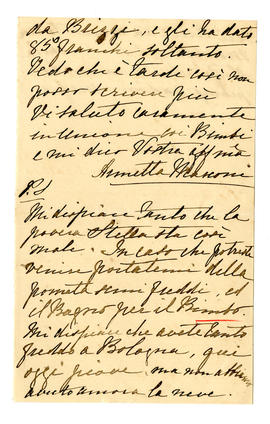 da Brizzi, e gli ha dato
85 franchi soltanto.
Vedo che è tardi così non
posso scrivere più
Vi saluto caramente
in unione coi Bimbi
e mi dico Vostra affma
Annetta Marconi
P.S
Mi dispiace tanto che la
povera Stella sta così
male. In caso che potreste
venire portatemi della
pomata semi freddi, ed
il Bagno per il Bimbo.
Mi dispiace che avete tanto
freddo a Bologna, qui
oggi piove ma non abbiamo
avuto ancora la neve.